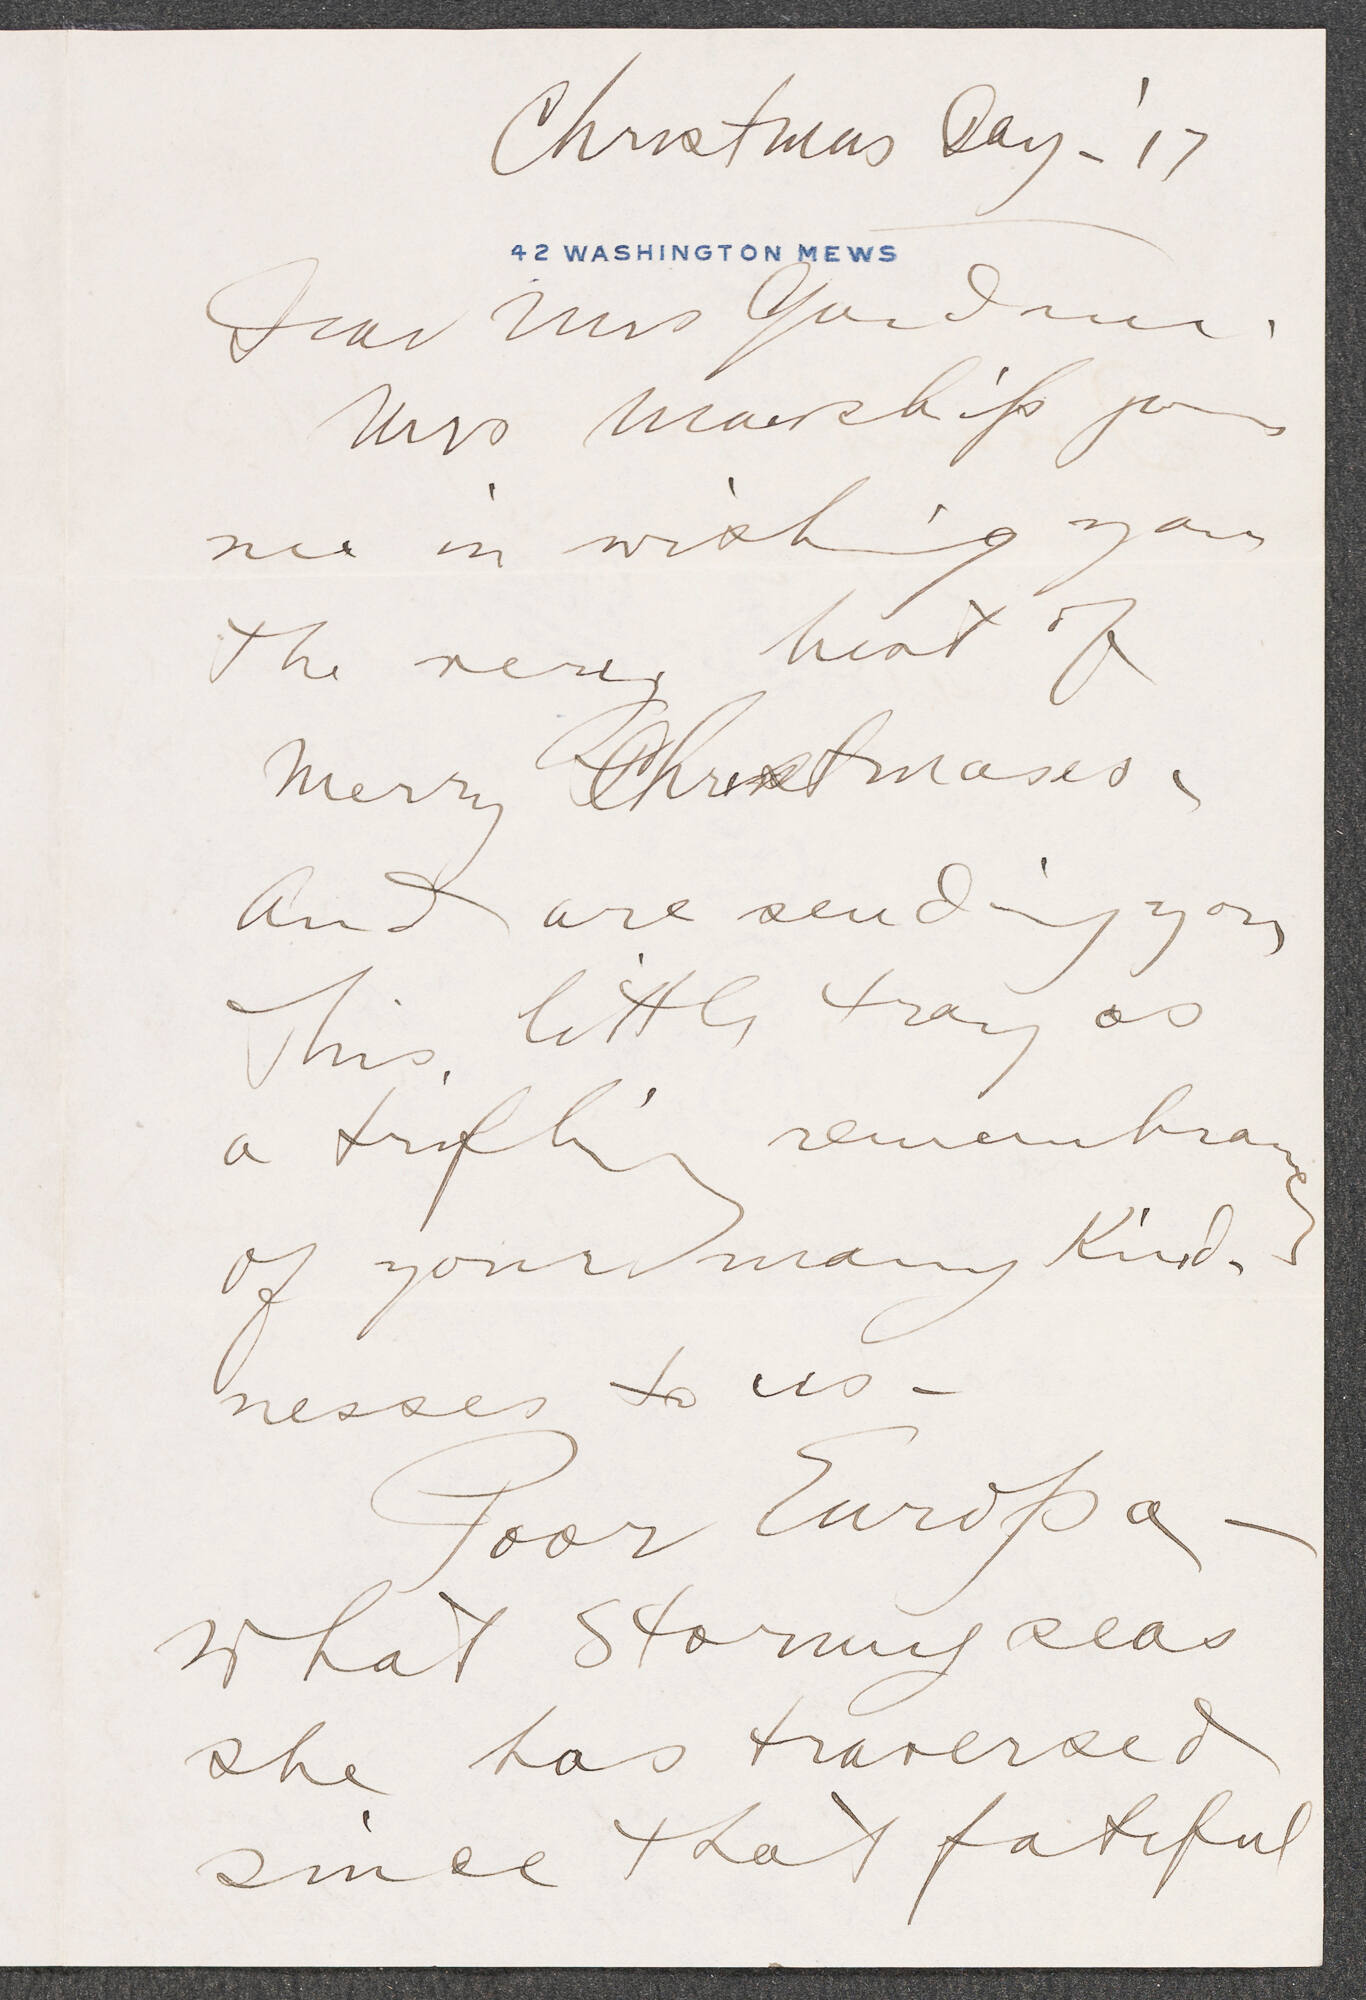 Christmas Day - '17
42 WASHINGTON MEWS
Dear Mrs Gardner.
Mrs Manship joins
me in wishing you
the very best of
Merry Christmases,
and are sending you
this little tray as
a trifling remembrance
of your many kind-
nesses to us -
Poor Europa -
what stormy seas
she has traversed
since that fateful